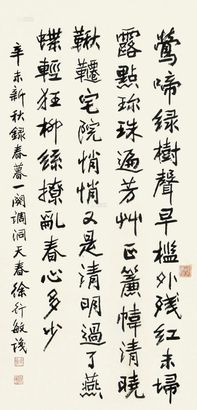 鶯啼緑樹聲早檻外残紅未埽
露點珍珠遍芳艸正簾幃清曉
鞦韆宅院悄悄又是清明過了燕
蝶輕狂柳絲撩亂春心多少
辛未新秋録春暮一闋調洞天春徐行敏識